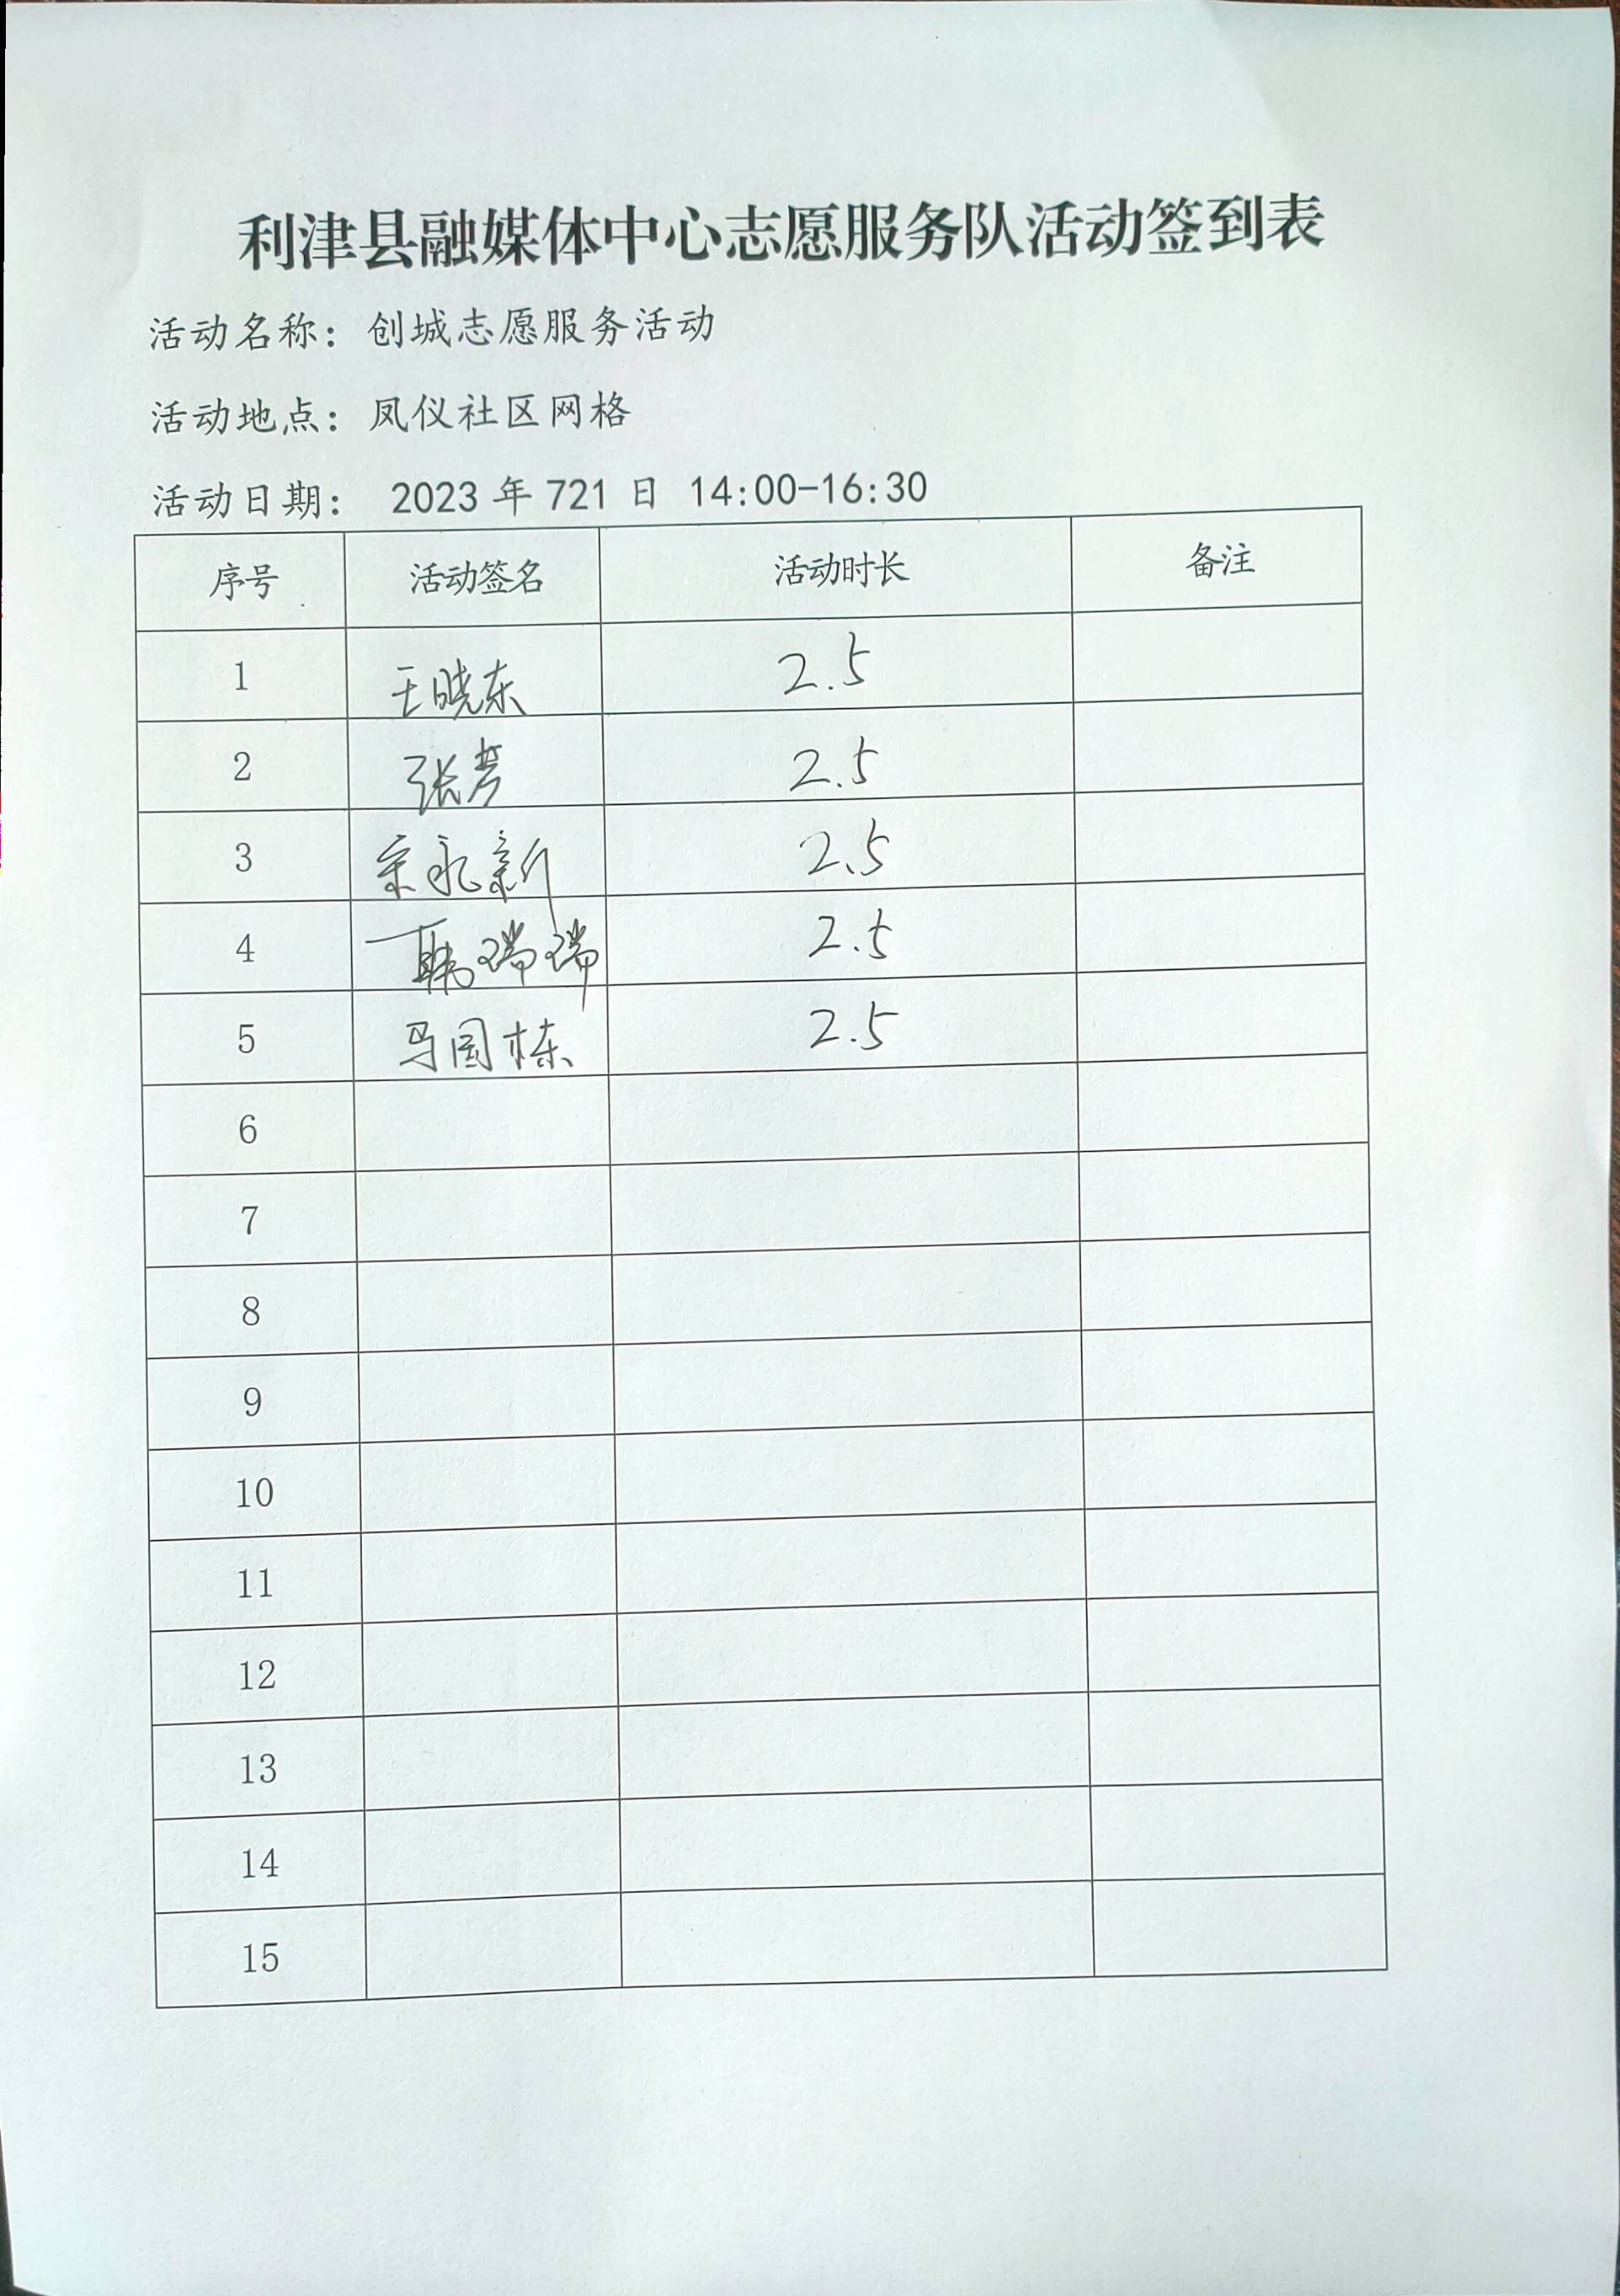 利津县融媒体中心志愿服务队活动签到表
活动名称：创城志愿服务活动
活动地点：凤仪社区网格
活动日期： 2023 年 721 日 14:00-16:30
序号 活动签名 活动时长 备注
1 王晓东 2.5
2 张 2.5
3 永新 2.5
4 韩瑞瑞 2.5
5 马国栋 2.5
6
7
8
9
10
11
12
13
14
15